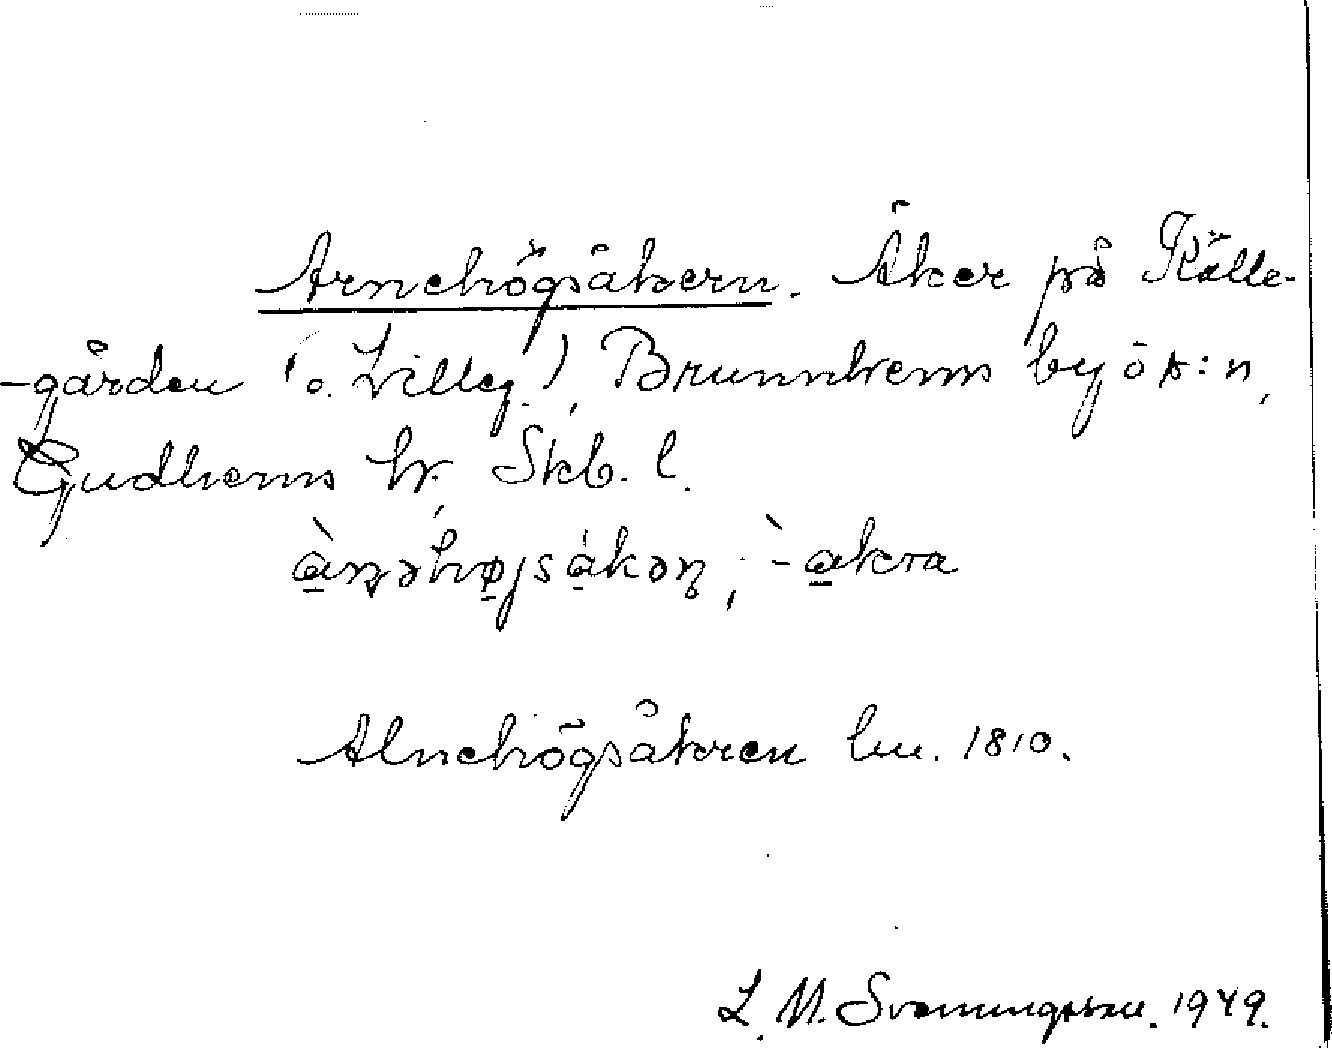 Arnehögsåkern. Åker på Källe-
-gården (o. Lilleg.), Brunnhems by ö s:n,
Gudhems hr, Skb. l.
àn̥əhøjsákən̥, `-akra
Alnehögsåkren lm. 1810.
L. M. Svenungsson. 1949.